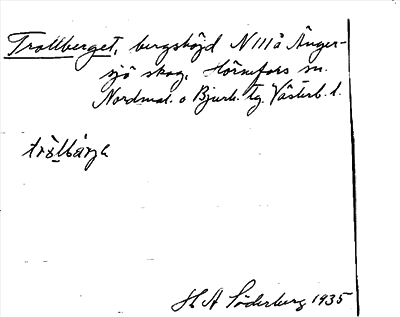 Trollberget, bergshöjd N III å Ånger-
sjö skog, Hörnefors sn.
Nordmal. o Bjurh. tg. Västerb. l.
trȯllbärje
H A Söderberg 1935